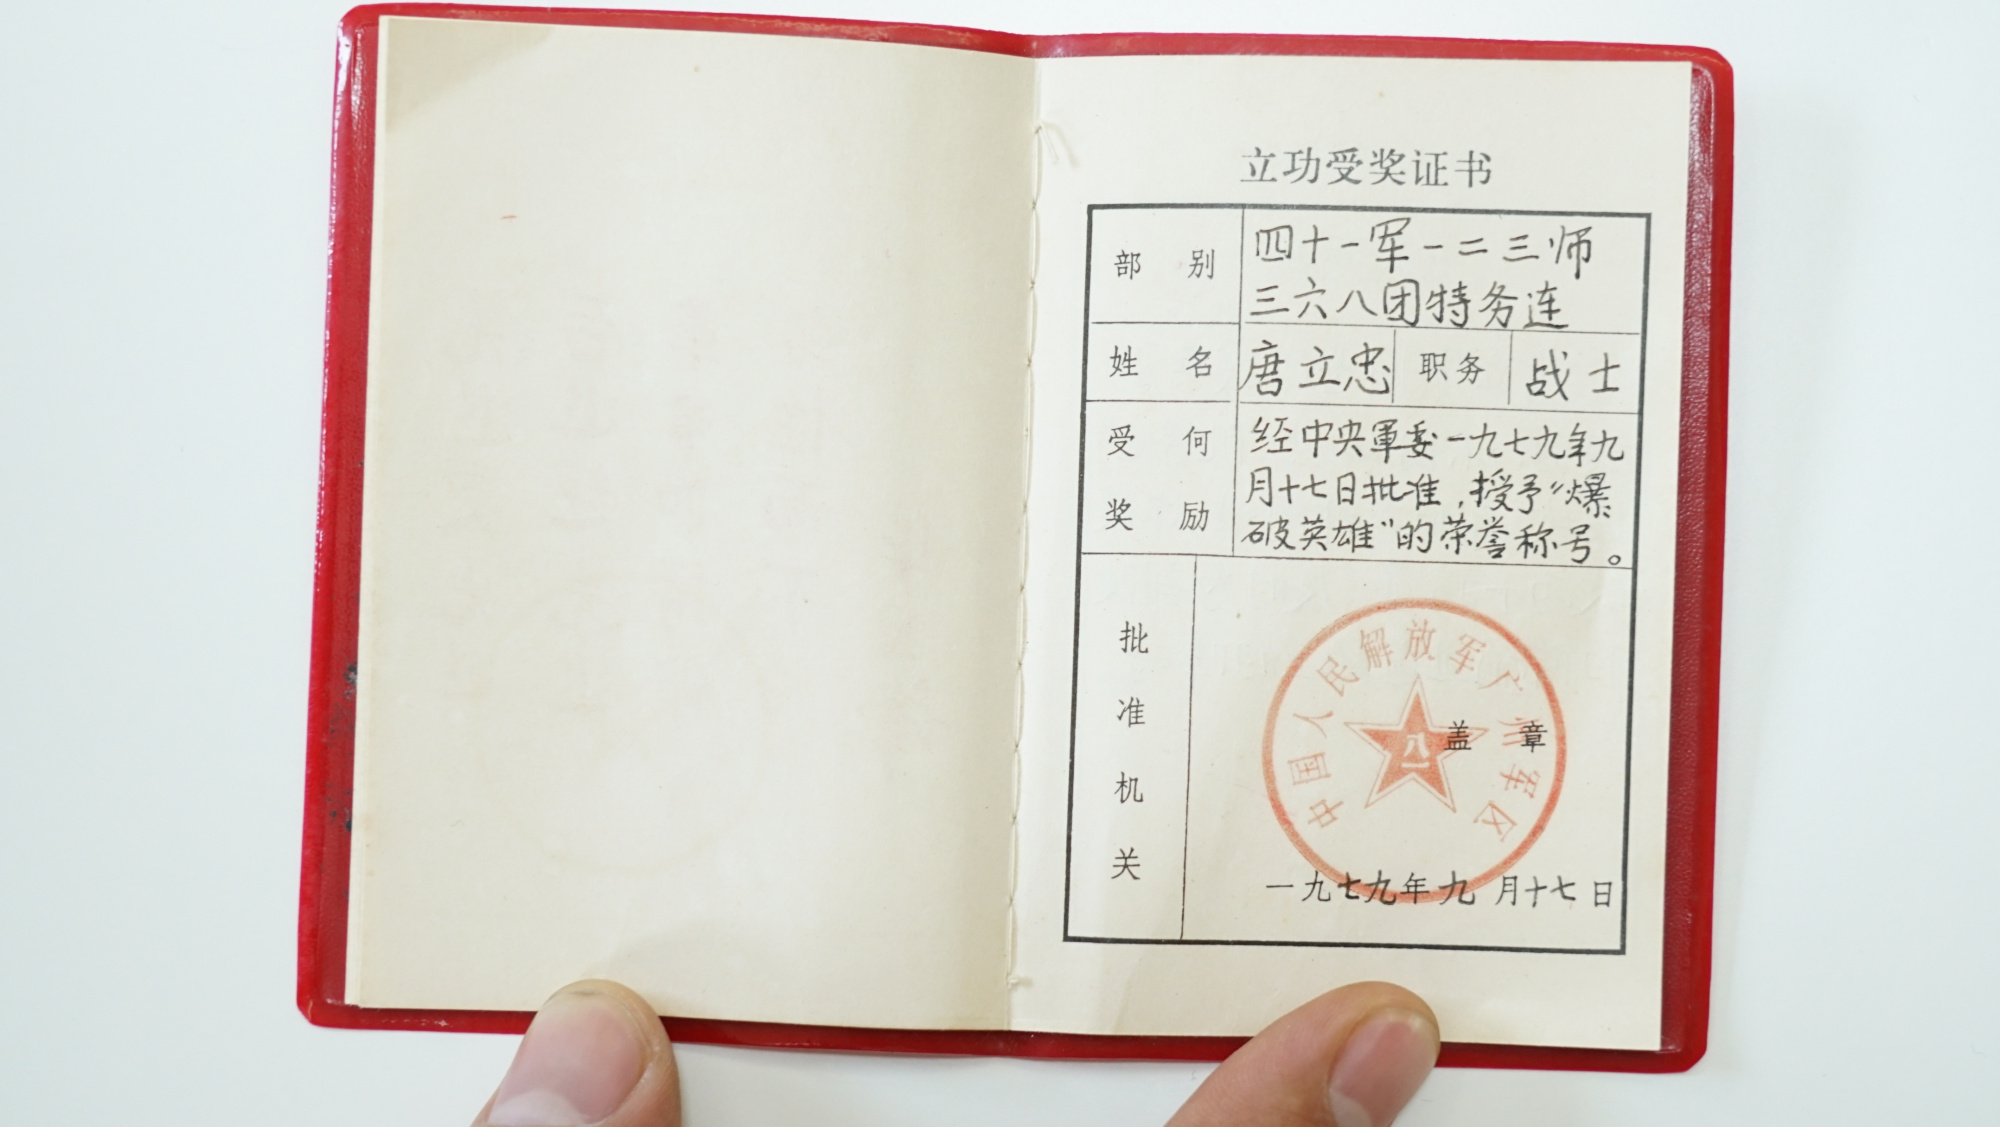 立功受奖证书
部 别 四十一军一二三师
三六八团特务连
姓 名 唐立忠 职务 战士
受 何 奖 励 经中央軍委一九七九年九
月十七日批准，授予“爆
破英雄”的荣誉称号。
批准机关
中国人民解放军广州军区
八一
盖 章
一九七九年九月十七日